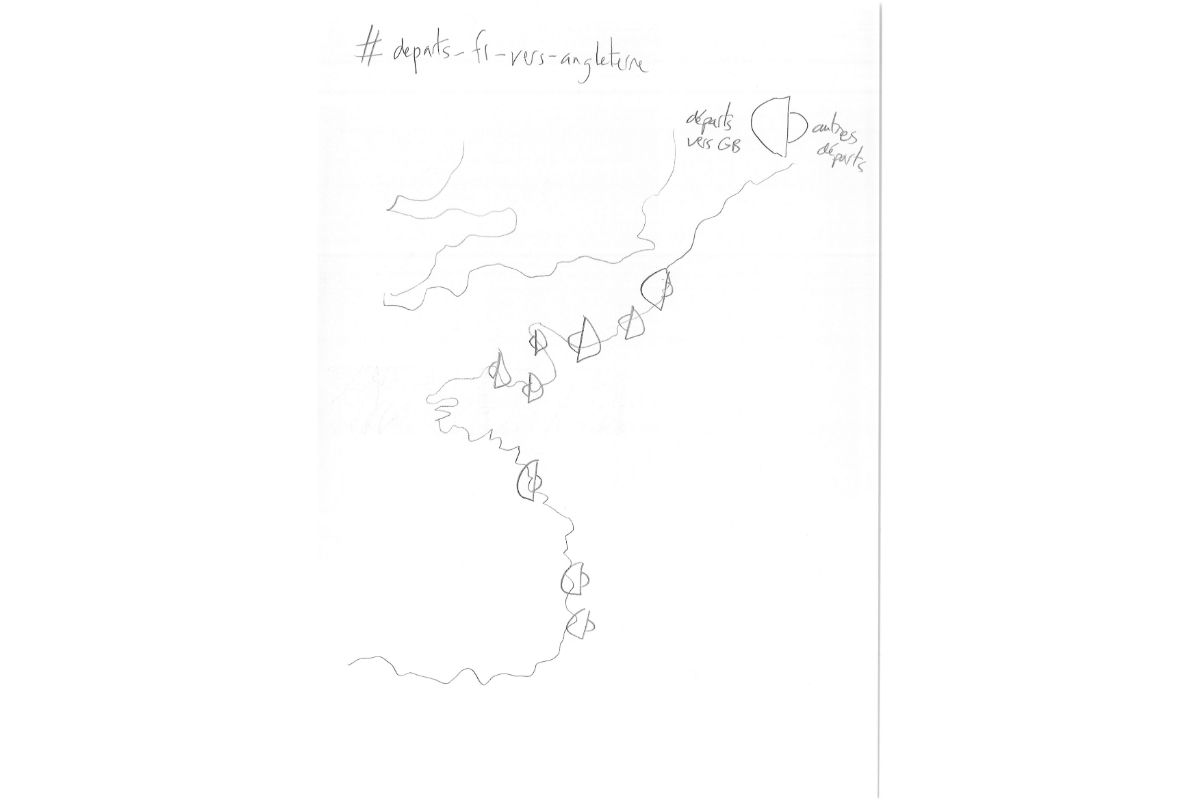 # departs-fr-vers-angleterre
départs
vers GB
autres
départs